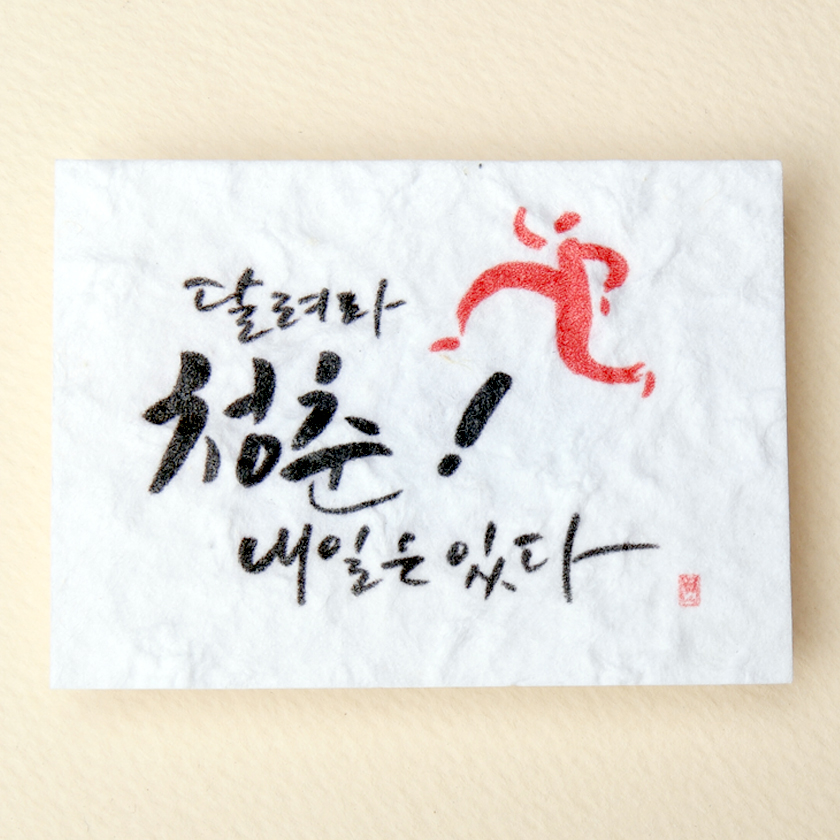 달려라
청춘!
내일은 있다